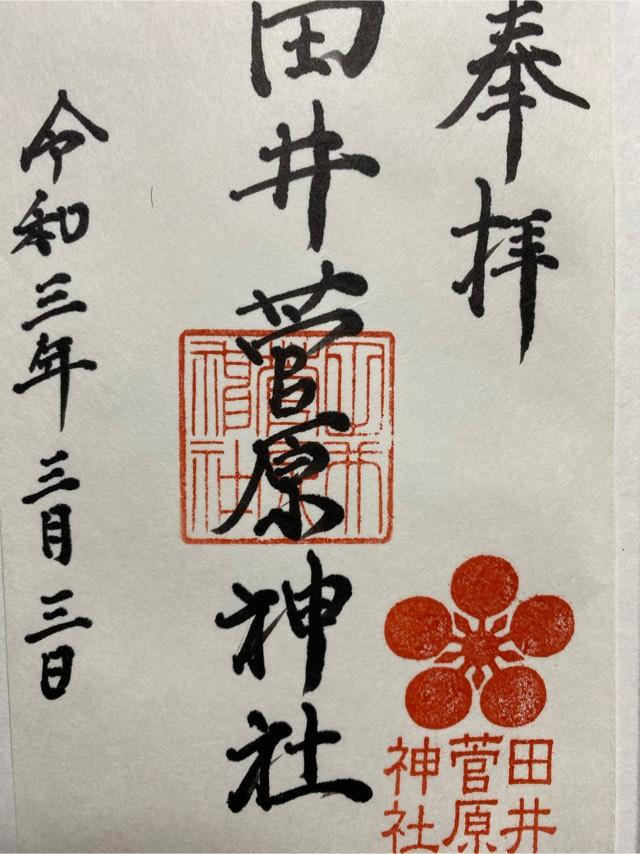 奉拝
田井菅原神社
令和三年三月三日
田井菅原神社
田井
菅原
神社